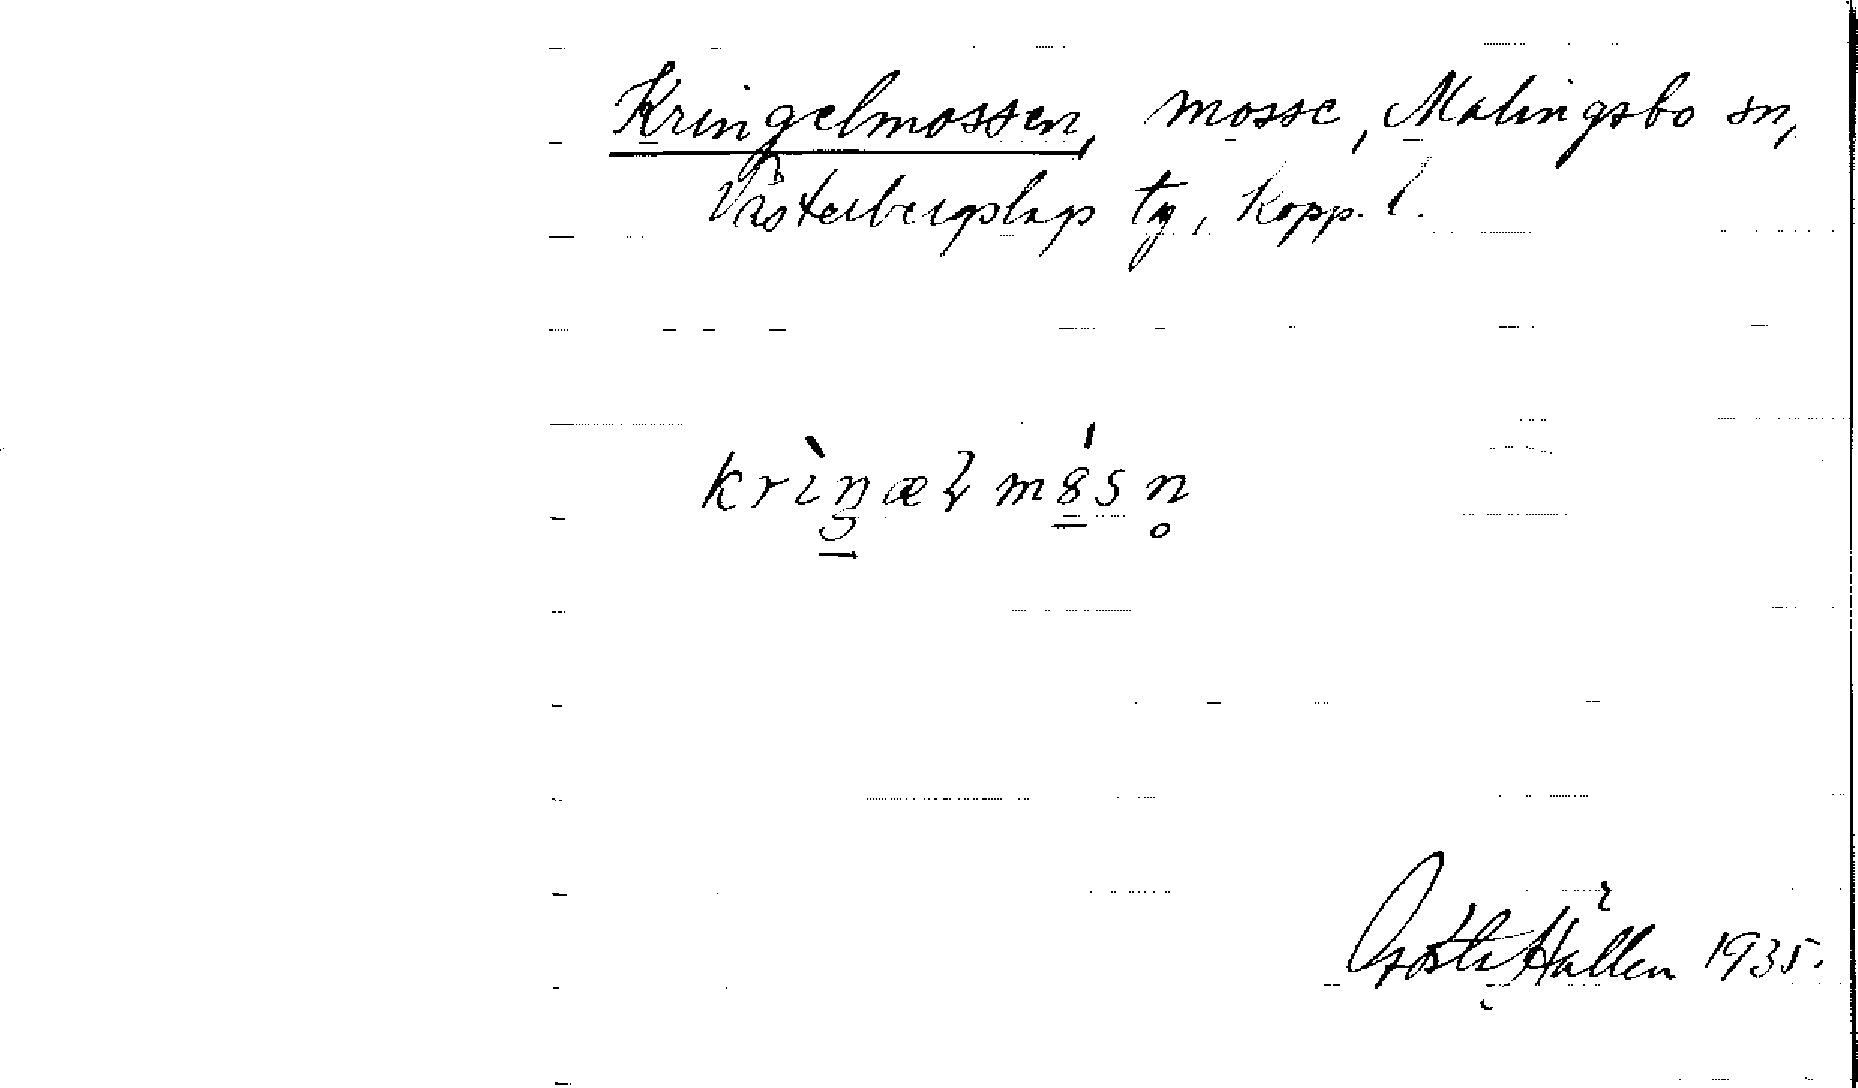 Kringelmossen, mosse, Malingsbo sn,
Västerbergslags tg, Kopp. l.
krìŋæɫmósn̥
Gösta Hallen 1935.